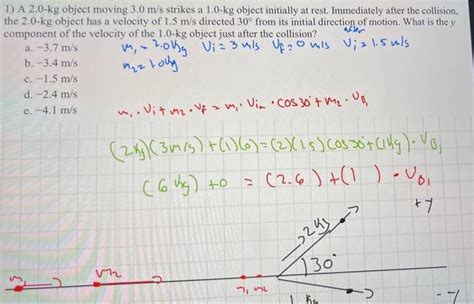 1) A 2.0-kg object moving 3.0 m/s strikes a 1.0-kg object initially at rest. Immediately after the collision,
the 2.0-kg object has a velocity of 1.5 m/s directed 30° from its initial direction of motion. What is the y
component of the velocity of the 1.0-kg object just after the collision?
after
a. −3.7 m/s m₁ = 2.0kg Vi = 3 m/s Vf = 0 m/s Vi = 1.5 m/s
b. −3.4 m/s m2 = 1.0kg
c. −1.5 m/s
d. −2.4 m/s
e. −4.1 m/s
m₁ · Vi + m2 · Vf = m₁ · Vin · cos30 + m2 · V0₁
(2kg)(3m/s) + (1)(0) = (2)(1.5)cos30 + (1kg) · V0₁
(6kg) + 0 = (2.6) + (1 ) · V0₁
+y
2kg
30°
m₁ m2
m₂
-y
1 kg